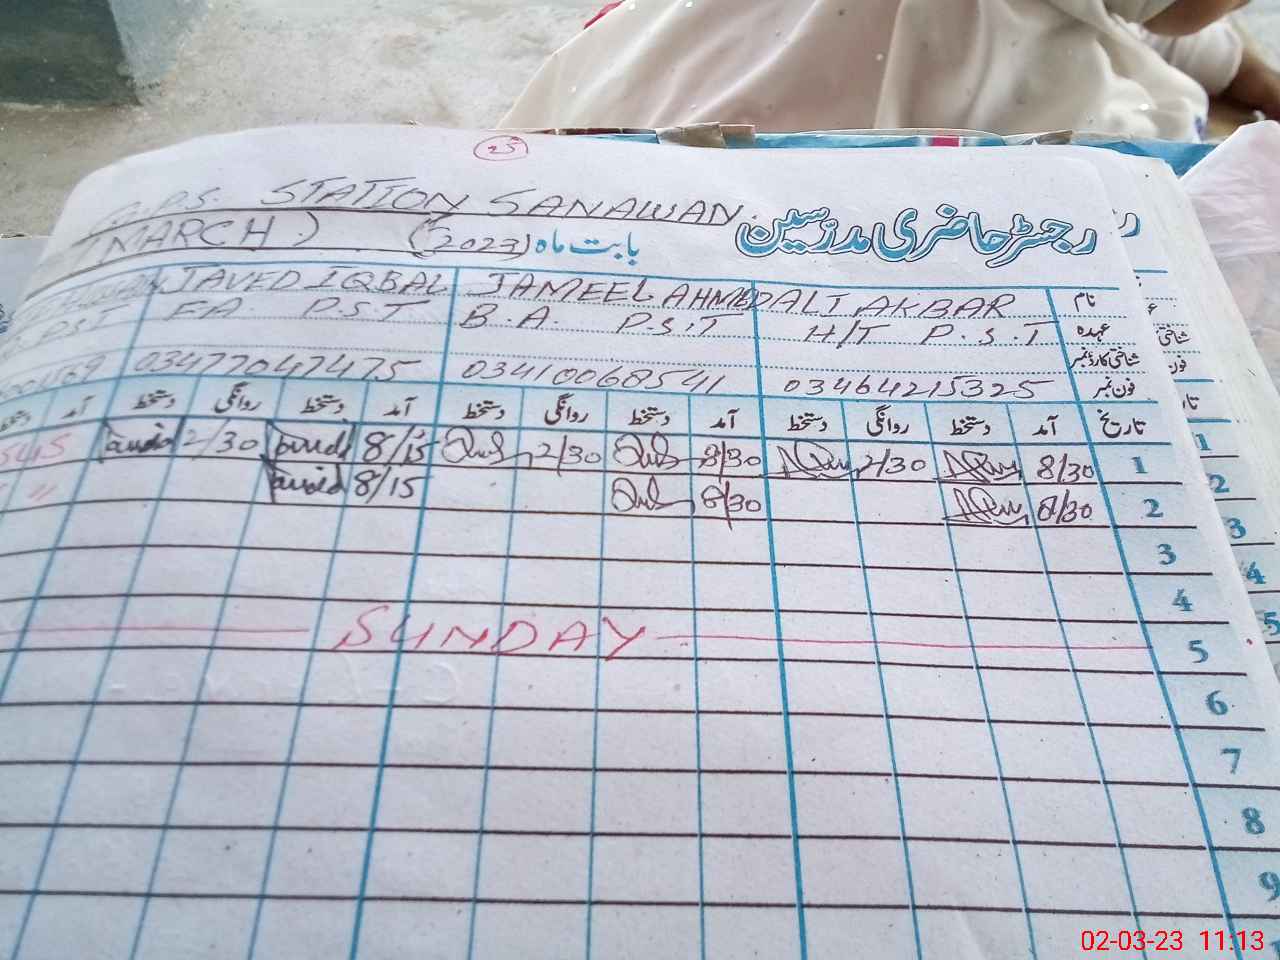 25
STATION SANAWAN
رجسٹر حاضری مدرسین
(MARCH) (2023) بابت ماہ
JAVED IQBAL JAMEEL AHMED ALI AKBAR نام
E.A. P.S.T B.A. P.S.T H/T P.S.T عہدہ
شناختی کارڈ نمبر
03477047475 03410068541 03464215325 فون نمبر
آمد دستخط روانگی دستخط آمد دستخط روانگی دستخط آمد دستخط روانگی دستخط آمد تاریخ
2/30 8/15 2/30 8/30 2/30 8/30 1
8/15 8/30 8/30 2
3
4
SUNDAY 5
6
7
8
9
1
2
3
4
5
02-03-23 11:13